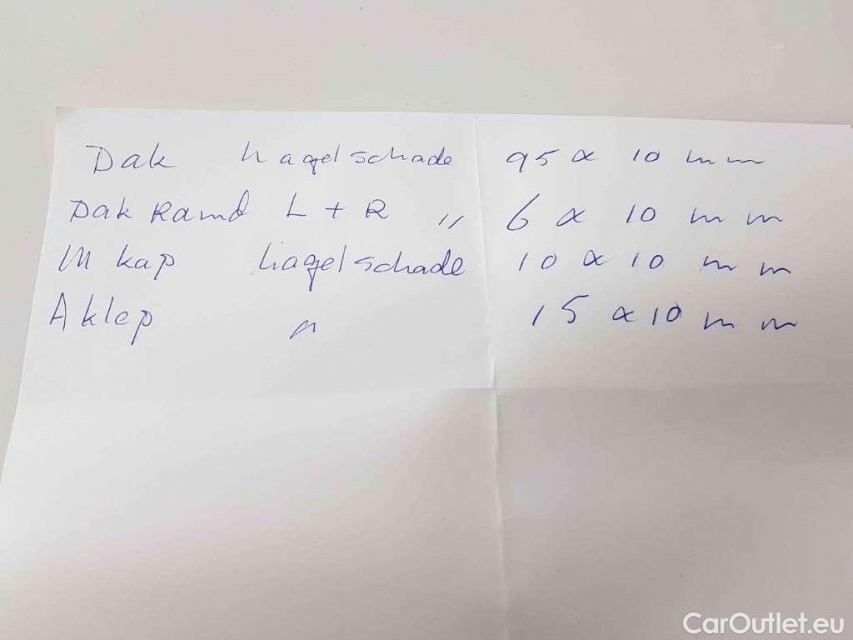 Dak hagelschade 95 x 10 mm
Dak Rand L + R " 6 x 10 mm
M kap hagelschade 10 x 10 mm
A klep " 15 x 10 mm
CarOutlet.eu